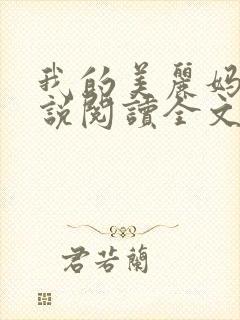 我的美麗媽
說閱讀全文
君若蘭